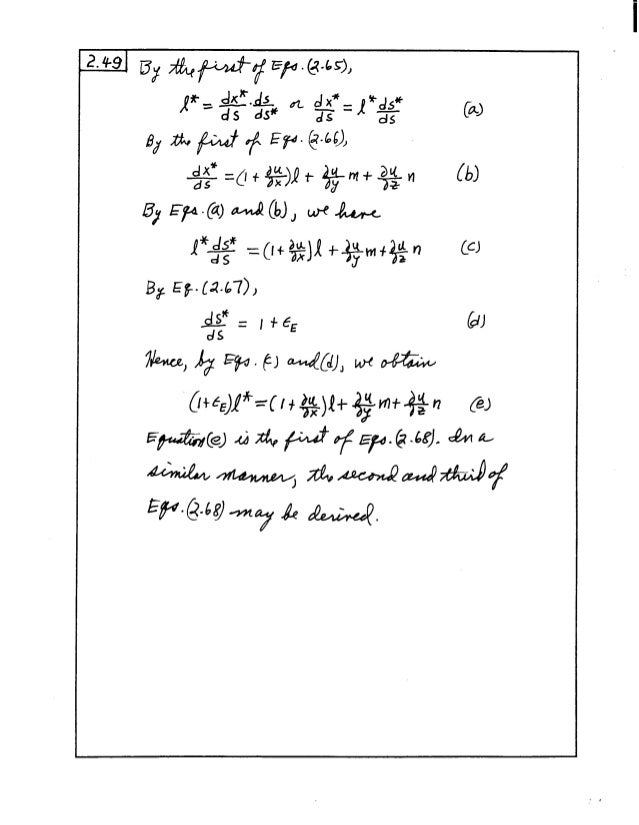 2.49 By the first of Eqs. (2.65),
l* = dx*/ds · ds/ds* or dx*/ds = l* ds*/ds (a)
By the first of Eqs. (2.66),
dx*/ds = (1 + ∂u/∂x)l + ∂u/∂y m + ∂u/∂z n (b)
By Eqs. (a) and (b), we have
l* ds*/ds = (1+ ∂u/∂x)l + ∂u/∂y m + ∂u/∂z n (c)
By Eq. (2.67),
ds*/ds = 1 + ϵE (d)
Hence, by Eqs. (c) and (d), we obtain
(1+ϵE)l* = (1 + ∂u/∂x)l + ∂u/∂y m + ∂u/∂z n (e)
Equation (e) is the first of Eqs. (2.68). In a
similar manner, the second and third of
Eqs. (2.68) may be derived.